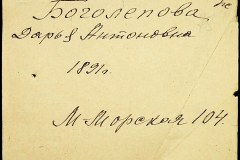 Боголепова
Дарья Антоновна
1891г.
М-Морская 104.